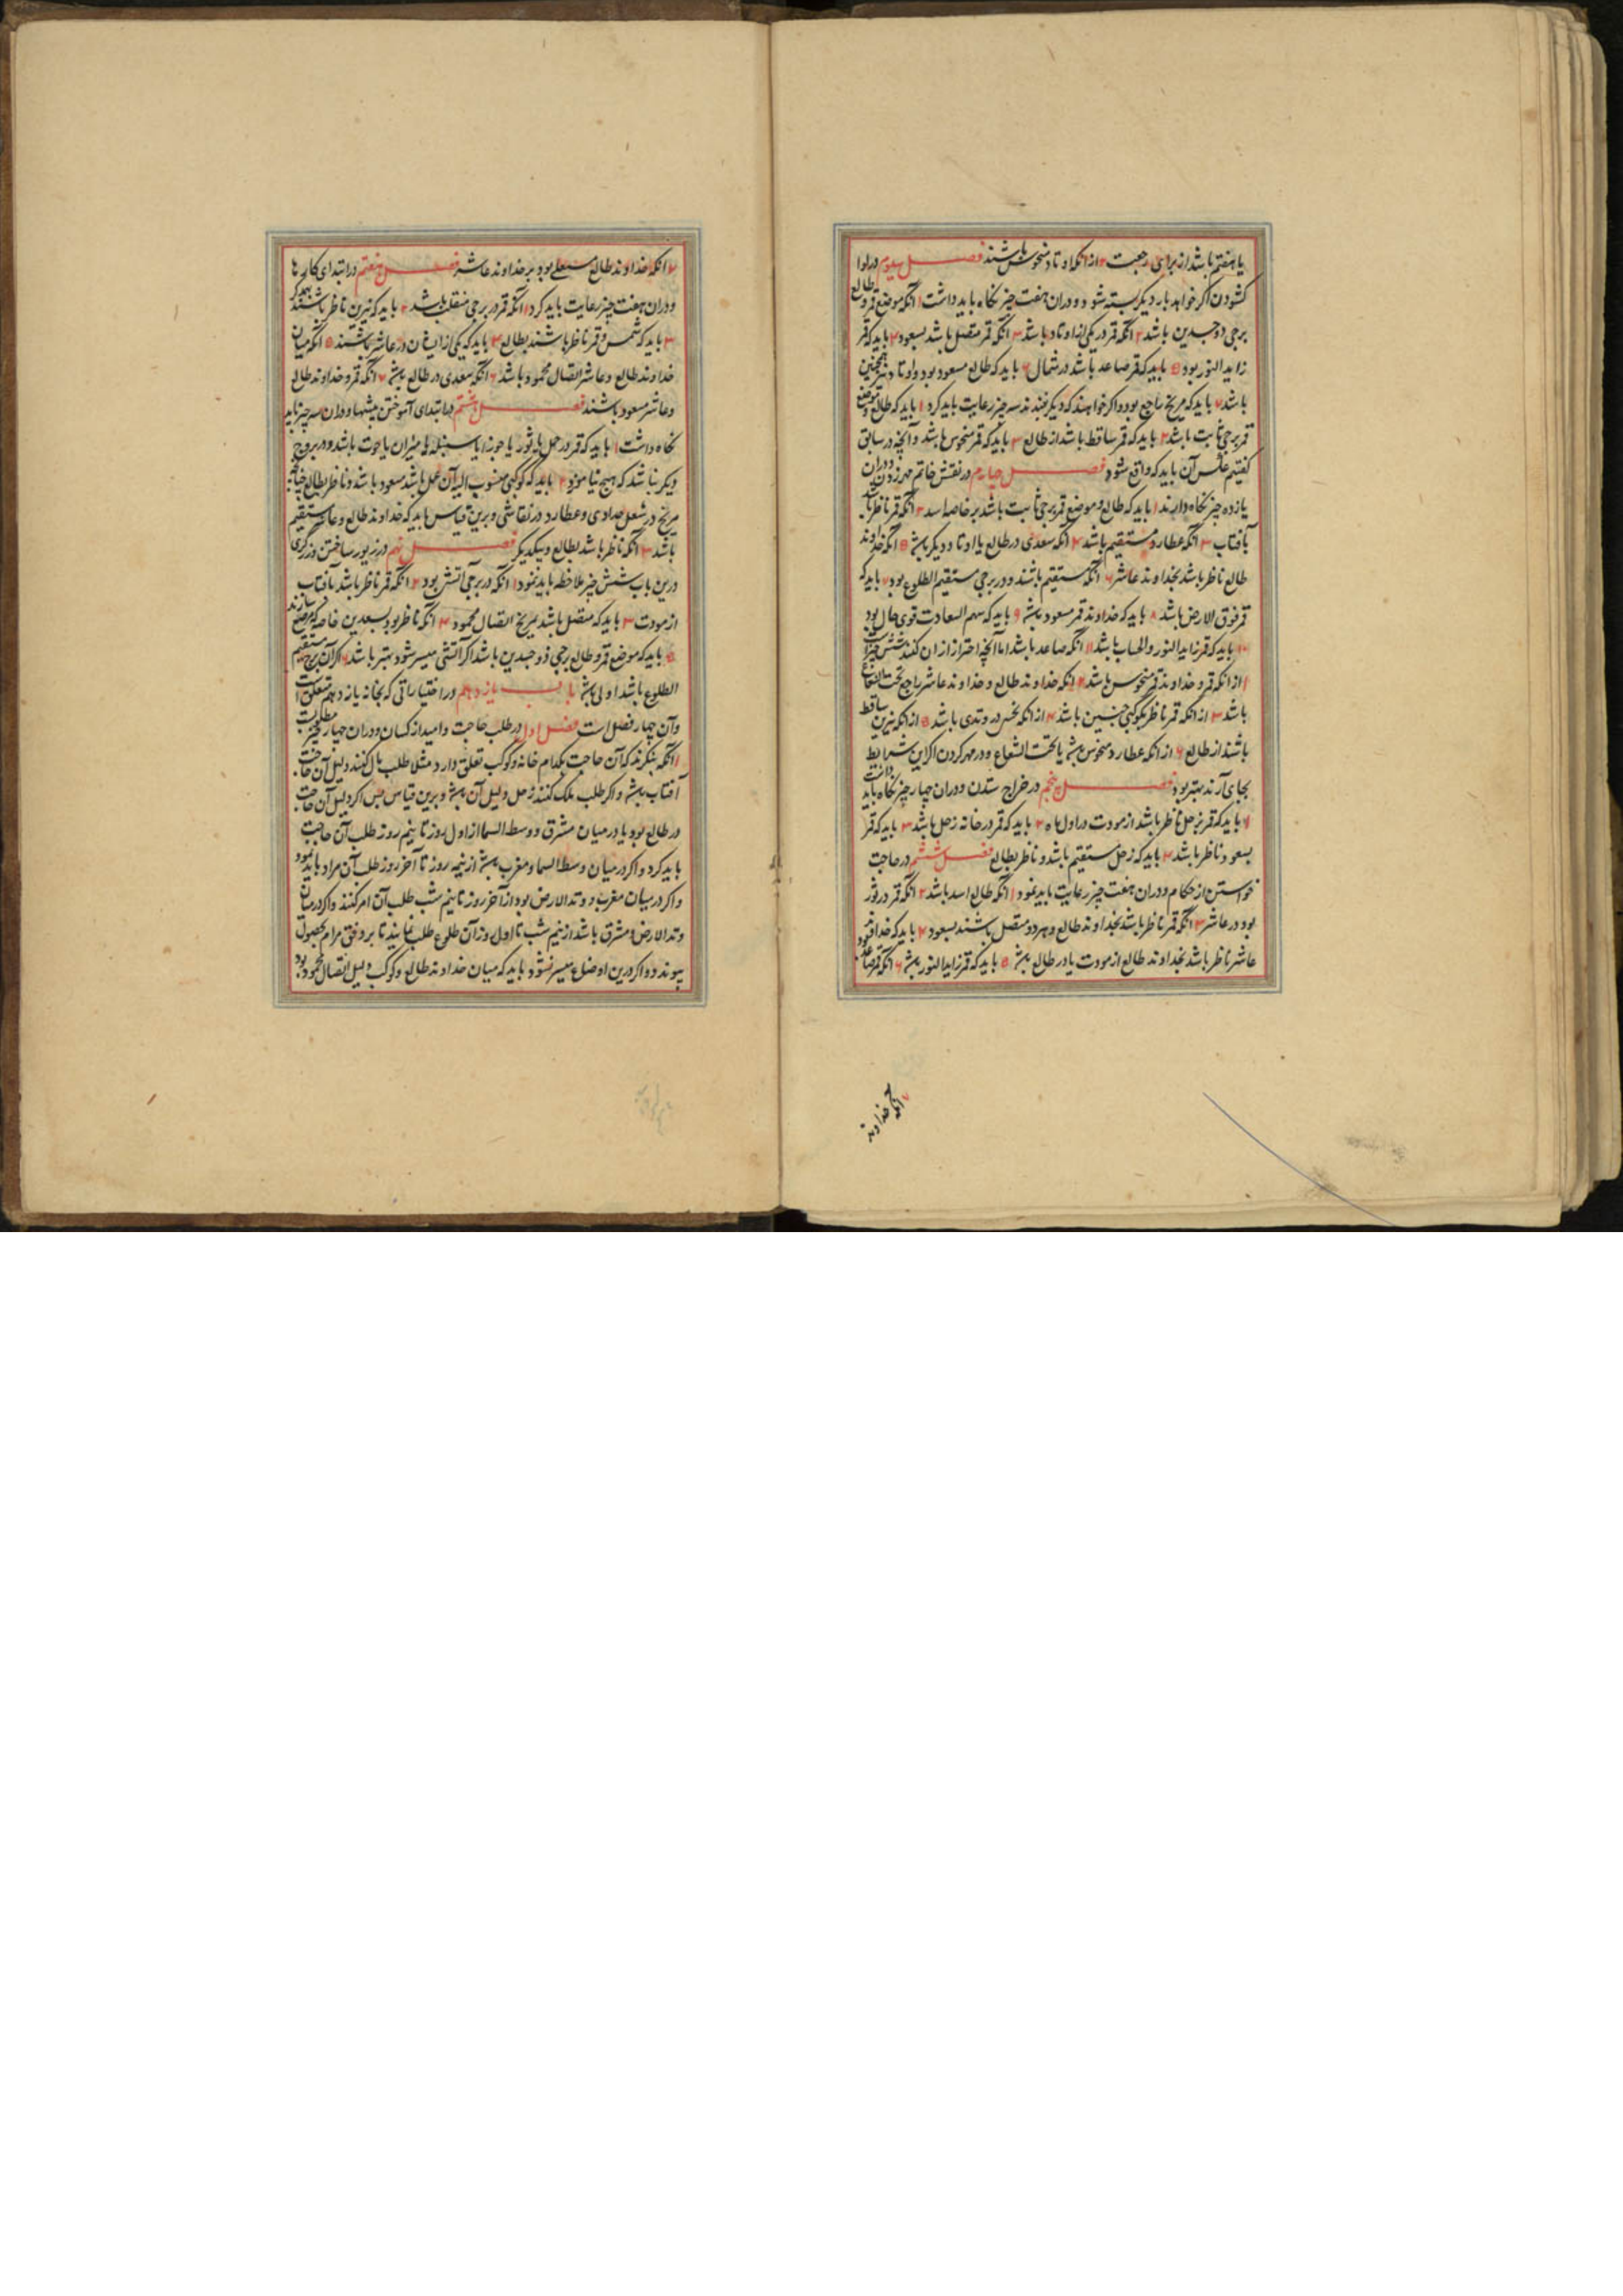 یا هفتم باشد از برای رجعت ۲ از انکه اوتاد منحوس باشند فصل سیوم در لوا
کشودن اکر خواهد بار دیکر بسته شود و دران هفت چیز نکاه باید داشت ۱ انکه موضع قمر و طالع
برجی ذوجسدین باشد ۲ انکه قمر در یکی از اوتاد باشد ۳ انکه قمر متصل باشد بسعود ۴ باید که قمر
زاید النور بود ۵ باید که قمر صاعد باشد در شمال ۶ باید که طالع مسعود بود و اوتاد همچنین
باشد ۷ باید که مریخ راجع بود و اکر خواهند که دیکر نبندند سه چیز رعایت باید کرد ۱ باید که طالع و موضع
قمر برجی ثابت باشد ۲ باید که قمر ساقط باشد از طالع ۳ باید که قمر منحوس باشد و آنچه در سابق
کفتیم عکس آن باید که واقع شود فصل چهارم در نقش خاتم و مهر زدن و دران
یازده چیز نکاه دارند ۱ باید که طالع و موضع قمر برجی ثابت باشد بر خاصه اسد ۲ انکه قمر ناظر باشد
بآفتاب ۳ انکه عطارد مستقیم باشد ۴ انکه سعدی در طالع یا اوتاد دیکر باشد ۵ انکه خداوند
طالع ناظر باشد بخداوند عاشر ۶ انکه مستقیم باشند و در برجی مستقیم الطلوع بود ۷ باید که
قمر فوق الارض باشد ۸ باید که خداوند قمر مسعود باشد ۹ باید که سهم السعادت قوی حال بود
۱۰ باید که قمر زاید النور والحساب باشد ۱۱ انکه صاعد باشد اما آنچه احتراز ازان کنند شش چیز است
۱ از انکه قمر و خداوند قمر منحوس باشد ۲ انکه خداوند طالع و خداوند عاشر راجع تحت الشعاع
باشد ۳ از انکه قمر ناظر بکوکبی چنین باشد ۴ از انکه نحس در وتدی باشد ۵ از انکه نیرین ساقط
باشند از طالع ۶ از انکه عطارد منحوس باشد یا تحت الشعاع و در مهر کردن اکر این شرایط
بجای آرند بهتر بود فصل پنجم در خراج ستدن و دران چهار چیز نکاه باید داشت
۱ باید که قمر بزحل ناظر باشد از مودت در اول ماه ۲ باید که قمر در خانه زحل باشد ۳ باید که قمر
بسعود ناظر باشد ۴ باید که زحل مستقیم باشد و ناظر بطالع فصل ششم در حاجت
خواستن از حکام و دران هفت چیز رعایت باید نمود ۱ انکه طالع اسد باشد ۲ انکه قمر در ثور
بود در عاشر ۳ انکه قمر ناظر باشد بخداوند طالع و هر دو متصل باشند بسعود ۴ باید که خداوند
عاشر ناظر باشد بخداوند طالع از مودت یا در طالع باشد ۵ باید که قمر زاید النور باشد ۶ انکه قمر صاعد بود
۷ انکه خداوند
۷ انکه خداوند طالع مستعلی بود بر خداوند عاشر فصل هفتم در ابتدای کارها
و دران هفت چیز رعایت باید کرد ۱ انکه قمر در برجی منقلب باشد ۲ باید که نیرین ناظر باشند بهمدیکر
۳ باید که شمس و قمر ناظر باشند بطالع ۴ باید که یکی از ایشان در عاشر باشند ۵ انکه میان
خداوند طالع و عاشر اتصال محمود باشد ۶ انکه سعدی در طالع باشد ۷ انکه قمر و خداوند طالع
و عاشر مسعود باشند فصل هشتم در ابتدای آموختن پیشها و دران سه چیز باید
نکاه داشت ۱ باید که قمر در حمل یا ثور یا جوزا یا سنبله یا میزان یا حوت باشد و در بروج
دیکر نباشد که هیچ نیاموزد ۲ باید که کوکبی منسوب الیه آن عمل باشد مسعود باشد و ناظر بطالع چنانچه
مریخ در شغل حدادی و عطارد در نقاشی و برین قیاس باید که خداوند طالع و عاشر مستقیم
باشد ۳ انکه ناظر باشد بطالع و بیکدیکر فصل نهم در زیور ساختن و زرکری
درین باب شش چیز ملاحظه باید نمود ۱ انکه در برجی آتشی بود ۲ انکه قمر ناظر باشد بآفتاب
از مودت ۳ باید که متصل باشد بمریخ اتصال محمود ۴ انکه ناظر بود بسعدین خاصه که مرصع سازند
۵ باید که موضع قمر و طالع برجی ذوجسدین باشد اکر آتشی میسر شود بهتر باشد ۶ اکر آن برج مستقیم
الطلوع باشد اولی باشد باب یازدهم در اختیاراتی که بخانه یازدهم متعلق است
و آن چهار فصل است فصل اول در طلب حاجت و امید از کسان و دران چهار چیز مطلوبست
۱ انکه بنکرند که آن حاجت بکدام خانه و کوکب تعلق دارد مثلا طلب مال کنند دلیل آن حاجت
آفتاب باشد و اکر طلب ملک کنند زحل دلیل آن باشد و برین قیاس پس اکر دلیل آن حاجت
در طالع بود یا در میان مشرق و وسط السما از اول روز تا نیم روز طلب آن حاجت
باید کرد و اکر در میان وسط السما و مغرب باشد از نیمه روز تا آخر روز طلب آن مراد باید نمود
و اکر در میان مغرب و وتد الارض بود از آخر روز تا نیم شب طلب آن امر کنند و اکر در میان
وتد الارض و مشرق باشد از نیم شب تا اول روز آن طلوع طلب نمایند تا بر وفق مرام بحصول
پیوندد و اکر درین اوضاع میسر نشود باید که میان خداوند طالع و کوکب دلیل اتصال محمود بود